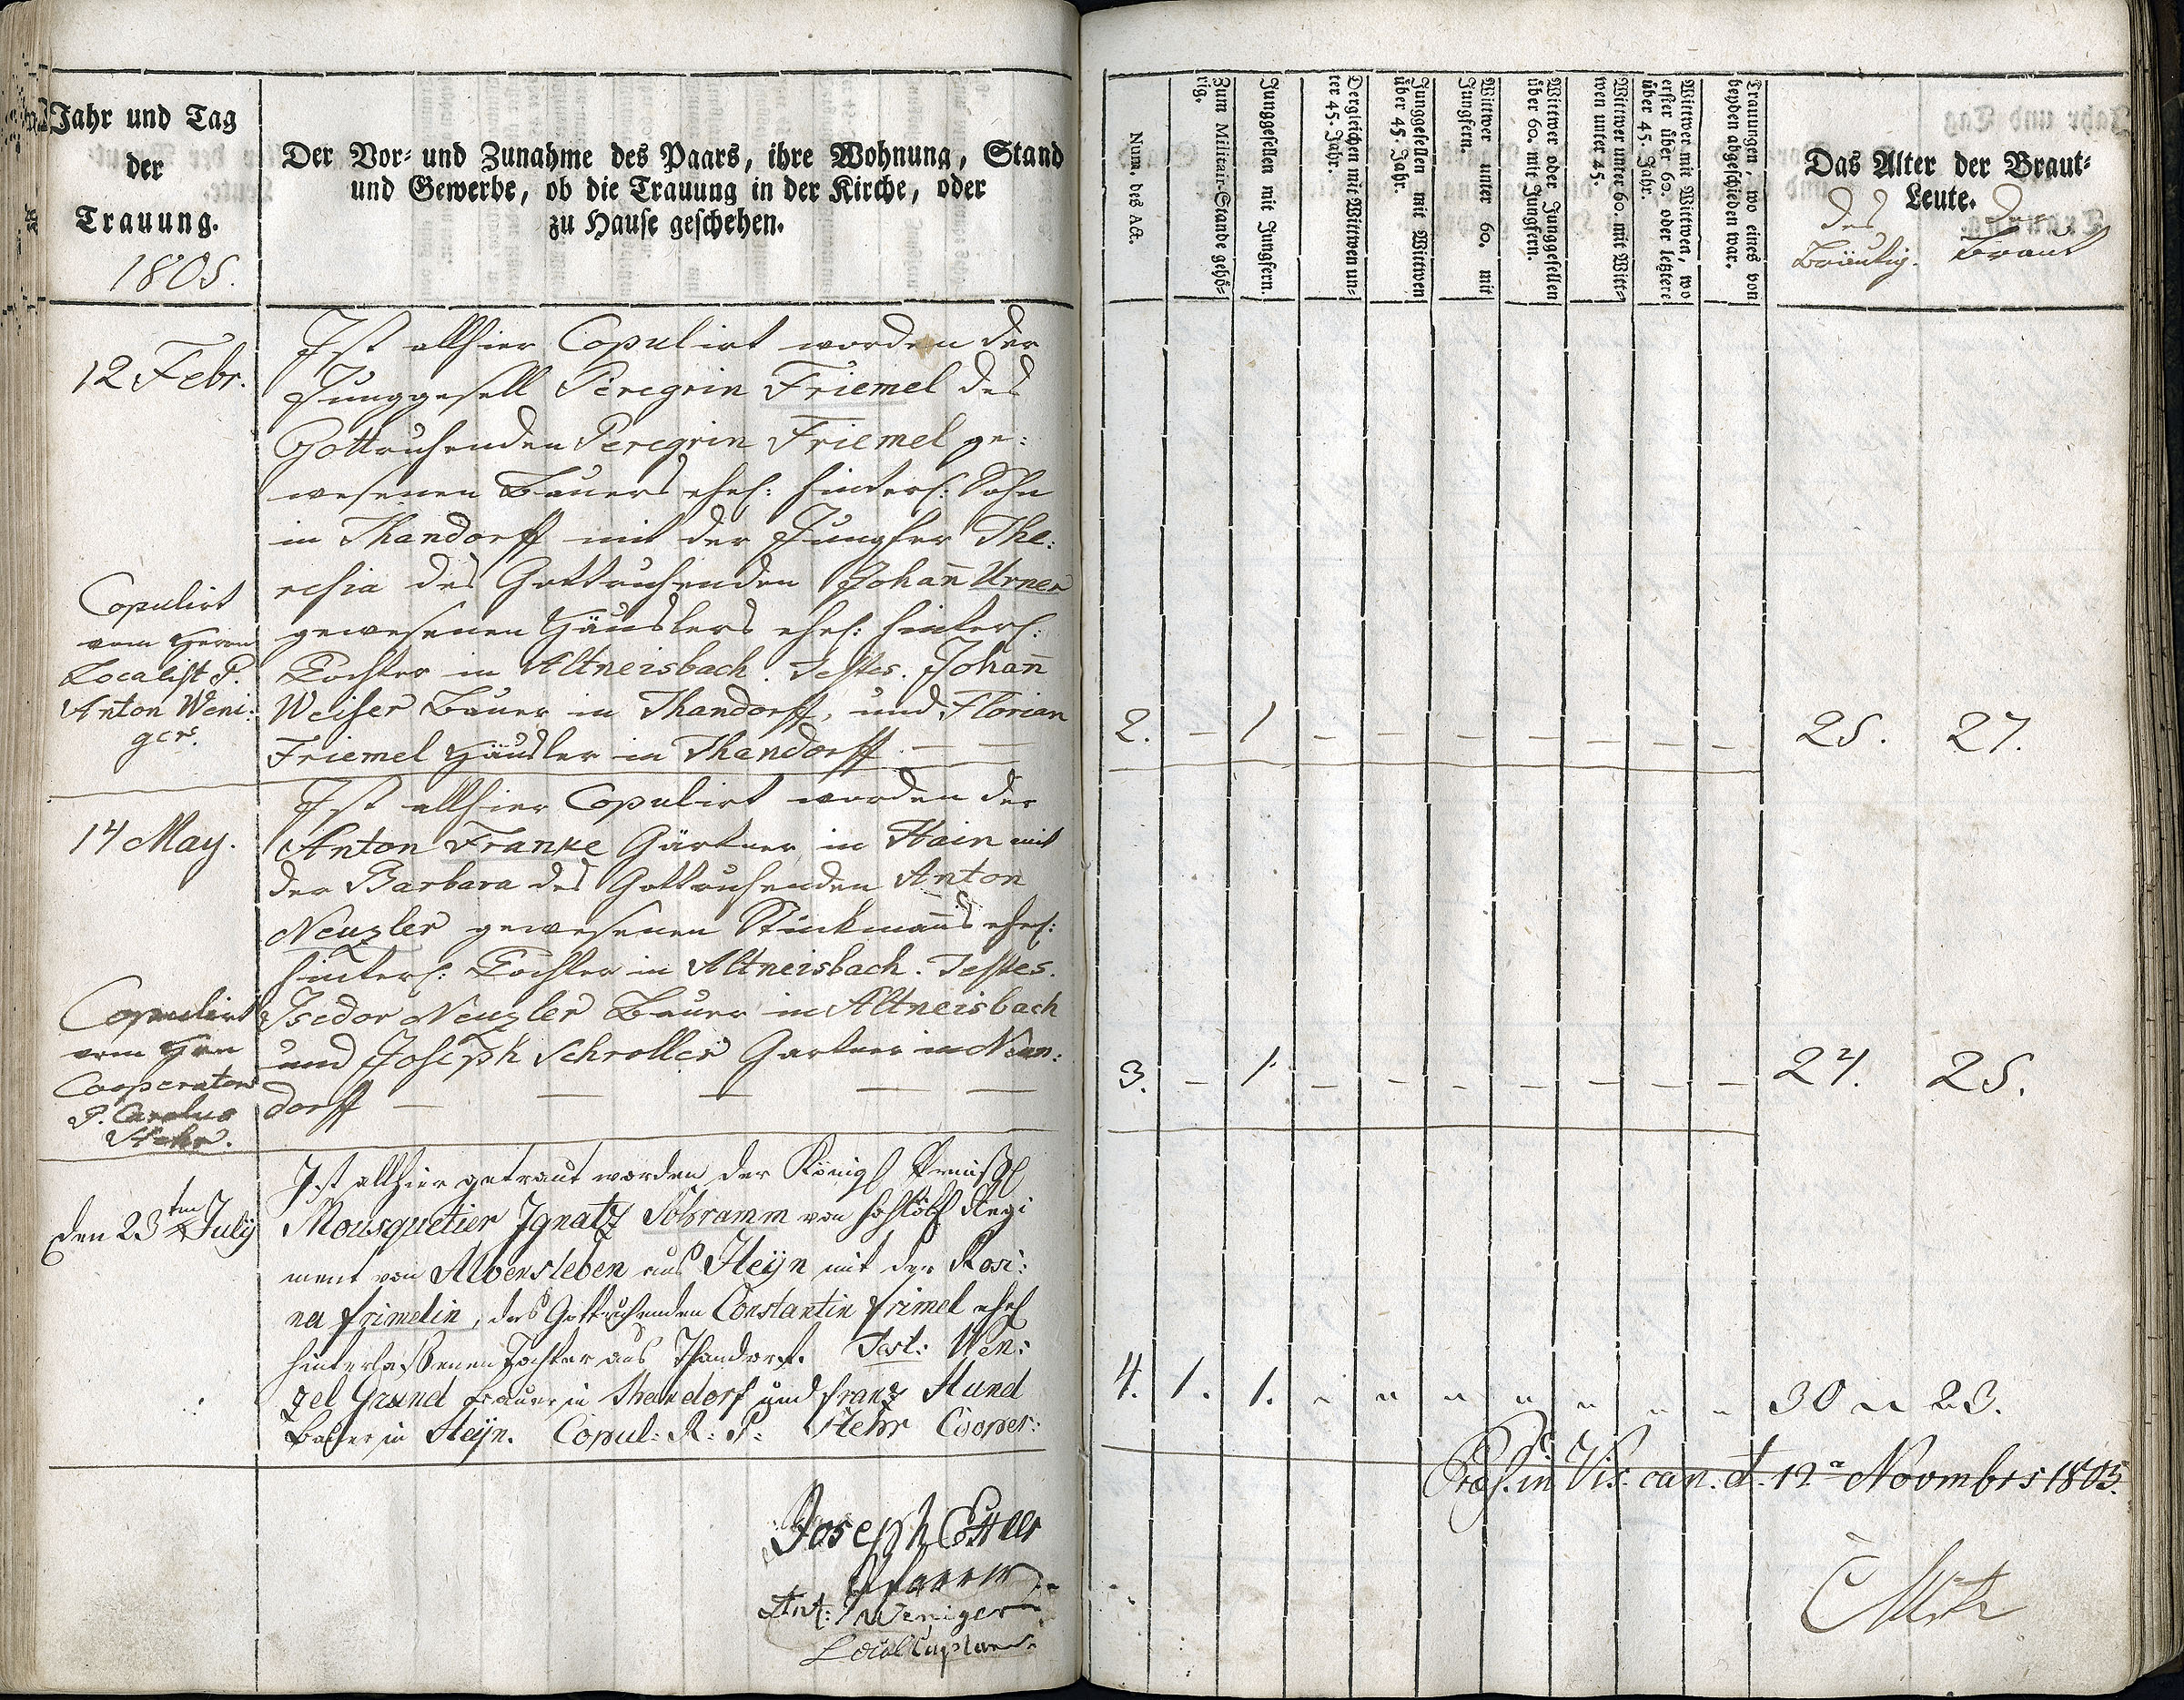 Jahr und Tag
der
Trauung.
1805.
Der Vor- und Zunahme des Paars, ihre Wohnung, Stand
und Gewerbe, ob die Trauung in der Kirche, oder
zu Hause geschehen.
Num. des Act.
Zum Militair-Stande gehö-
rig.
Junggesellen mit Jungfern.
Dergleichen mit Wittwen un-
ter 45. Jahr.
Junggesellen mit Wittwen
über 45. Jahr.
Wittwer unter 60. mit
Jungfern.
Wittwer oder Junggesellen
über 60. mit Jungfern.
Wittwer unter 60. mit Witt-
wen unter 45.
Wittwer mit Wittwen, wo
erster über 60. oder letztere
über 45. Jahr.
Trauungen, wo eines von
beyden abgeschieden war.
Das Alter der Braut-
Leute.
des
Bräutig.
der
Braut
12 Febr.
Ist allhier Copulirt worden der
Junggesell Peregrin Friemel des
Gottruhenden Peregrin Friemel ge:
wesenen Bauers ehel: hinterl: Sohn
in Thandorff mit der Jungfer The:
resia des Gottruhenden Johañ Urner
gewesenen Häuslers ehel: hinterl:
Tochter in Altneisbach. Testes. Johañ
Weiser Bauer in Thandorff, und Florian
Friemel Häusler in Thandorff. — —
Copulirt
vom Herrn
Localist P.
Anton Weni:
ger.
2. – 1 – – – – – – – 25. 27.
14 May.
Ist allhier Copulirt worden der
Anton Franke Gärtner in Hain mit
der Barbara des Gottruhenden Anton
Neuzler gewesenen Stückmañs ehel:
hinterl: Tochter in Altneisbach. Testes.
Isedor Neuzler Bauer in Altneisbach
und Joseph Schroller Gartner in Neun:
dorff — — — — —
Copulirt
vom Hrn
Cooperator
P. Carolus
Stehr.
3. – 1. – – – – – – – 24. 25.
den 23ten July
Ist allhier getraut worden der Königl Preußl
Mousquetier Ignatz Schramm von hochlöbl Regi
ment von Alvensleben aus Heÿn mit der Rosi:
na frimelin, des Gottruhenden Constantin frimel ehel
hinterlaßenen Tochter aus Thandorf. Test: Wen:
zel Grund Bauer in Thandorf und franz Hund
Bauer in Heÿn. Copul: R: P: Stehr Cooper:
4. 1. 1. 30 23.
Prod. in Vis. can. d. 12a Novmbrs 1805.
Joseph
Pfarrer
Ant: Weniger
Local Caplan